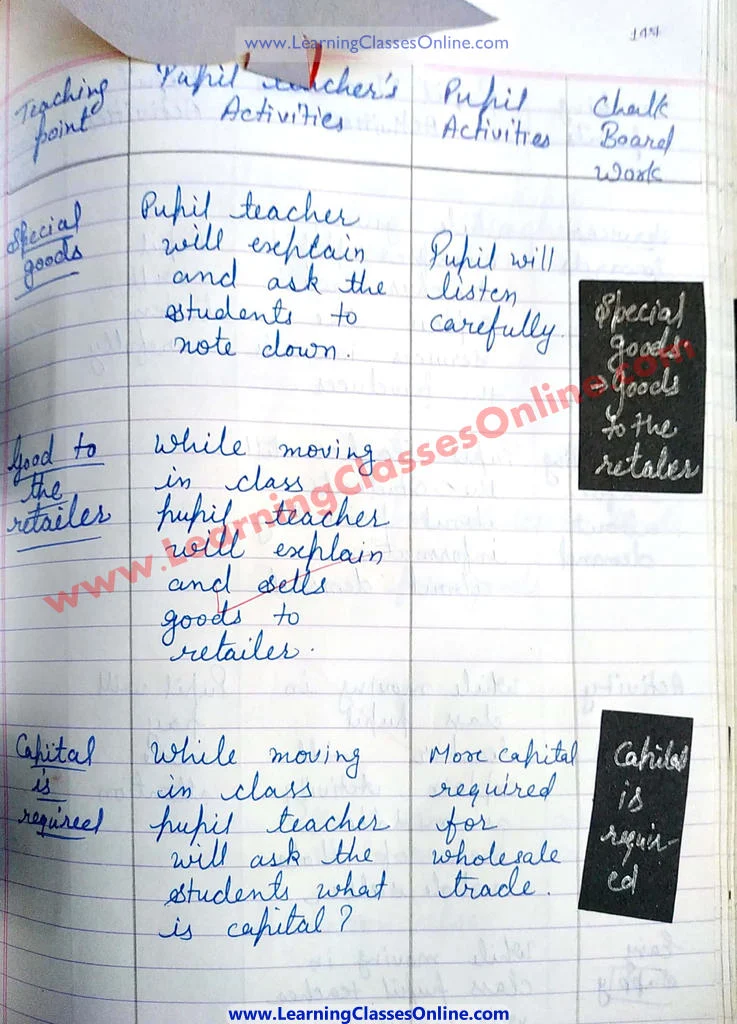 www.LearningClassesOnline.com
Teaching
point
Pupil teacher's
Activities
Pupil
Activities
Chalk
Board
Work
Special
goods
Pupil teacher
will explain
and ask the
students to
note down.
Pupil will
listen
carefully.
Special
goods
→ goods
to the
retaler
Good to
the
retailer
While moving
in class
pupil teacher
will explain
and sells
goods to
retailer.
www.LearningClassesOnline.com
Capital
is
required
While moving
in class
pupil teacher
will ask the
students what
is capital?
More capital
required
for
wholesale
trade.
Capital
is
requir-
ed
www.LearningClassesOnline.com